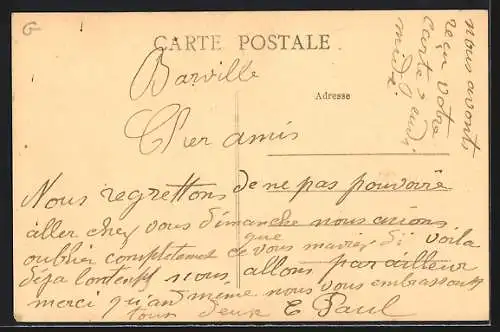 G
CARTE POSTALE
Adresse
Barville
Cher amis
Nous regrettons de ne pas pouvoire
aller chez vous dimanche nous avions
oublier completement ce que vous m'aviez di voila
déja lontemps nous allons par ailleur
merci quand même nous vous embrassons
tous deux E Paul
nous avonts
reçu votre
carte jeudi
midi